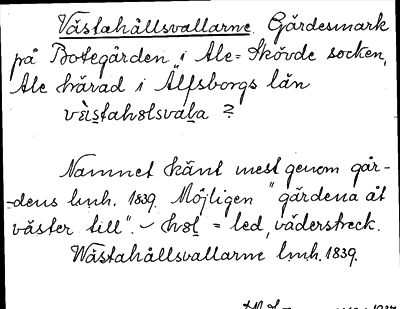 Västahållsvallarne. Gärdesmark
på Botegården i Ale-Skövde socken,
Ale härad i Älfsborgs län
vèistahɔlsvaḷa ?
Namnet känt mest genom går-
-dens lmh. 1839. Möjligen "gärdena åt
väster till". - hɔḷ = led, väderstreck.
Wästahållsvallarne lmh. 1839.